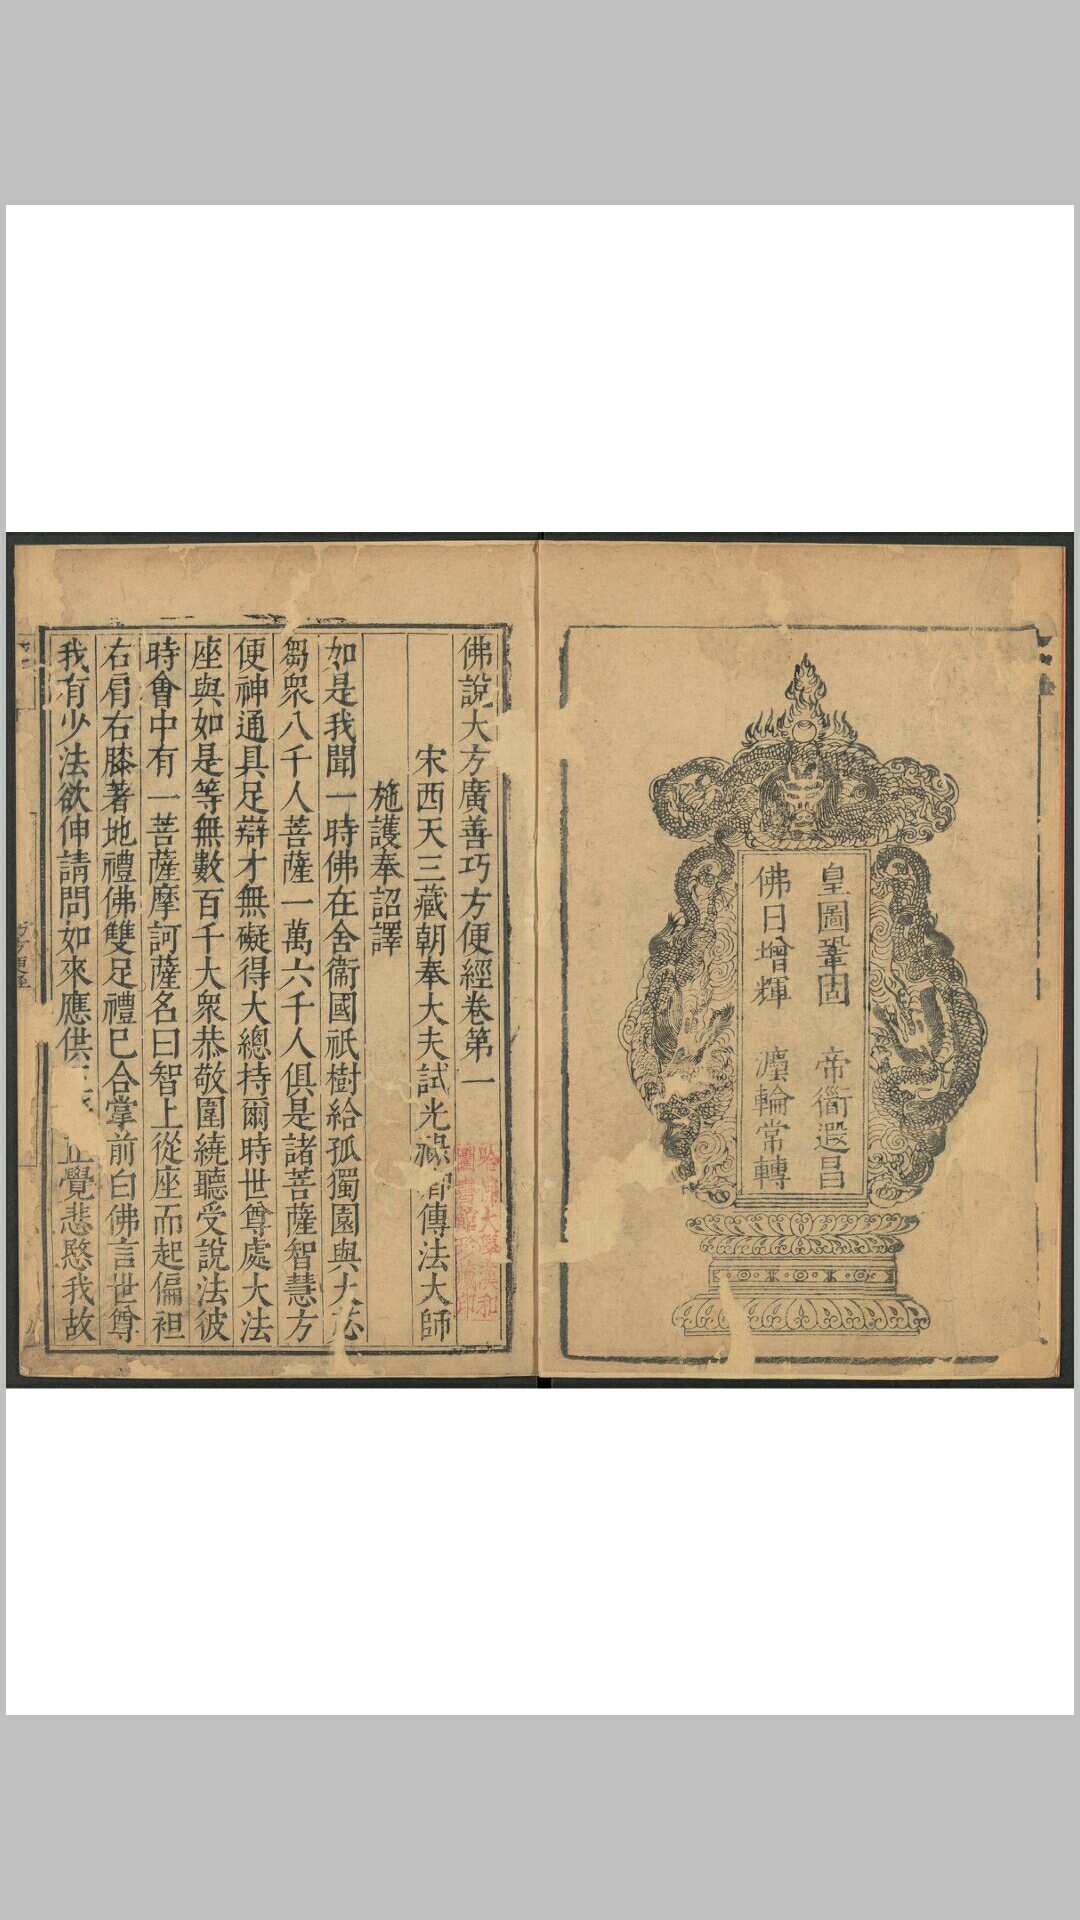 皇圖鞏固　帝衜遐昌
佛日增輝　灋輪常轉
佛說大方廣善巧方便經卷第一
宋西天三藏朝奉大夫試光祿傳法大師
施護奉詔譯
如是我聞一時佛在舍衞國祇樹給孤獨園與大苾
芻衆八千人菩薩一萬六千人俱是諸菩薩智慧方
便神通具足辯才無礙得大總持爾時世尊處大法
座與如是等無數百千大衆恭敬圍繞聽受說法彼
時會中有一菩薩摩訶薩名曰智上從座而起偏袒
右肩右膝著地禮佛雙足禮已合掌前白佛言世尊
我有少法欲伸請問如來應供正覺悲愍我故
哈佛大學漢和
圖書館珍藏印
方便經